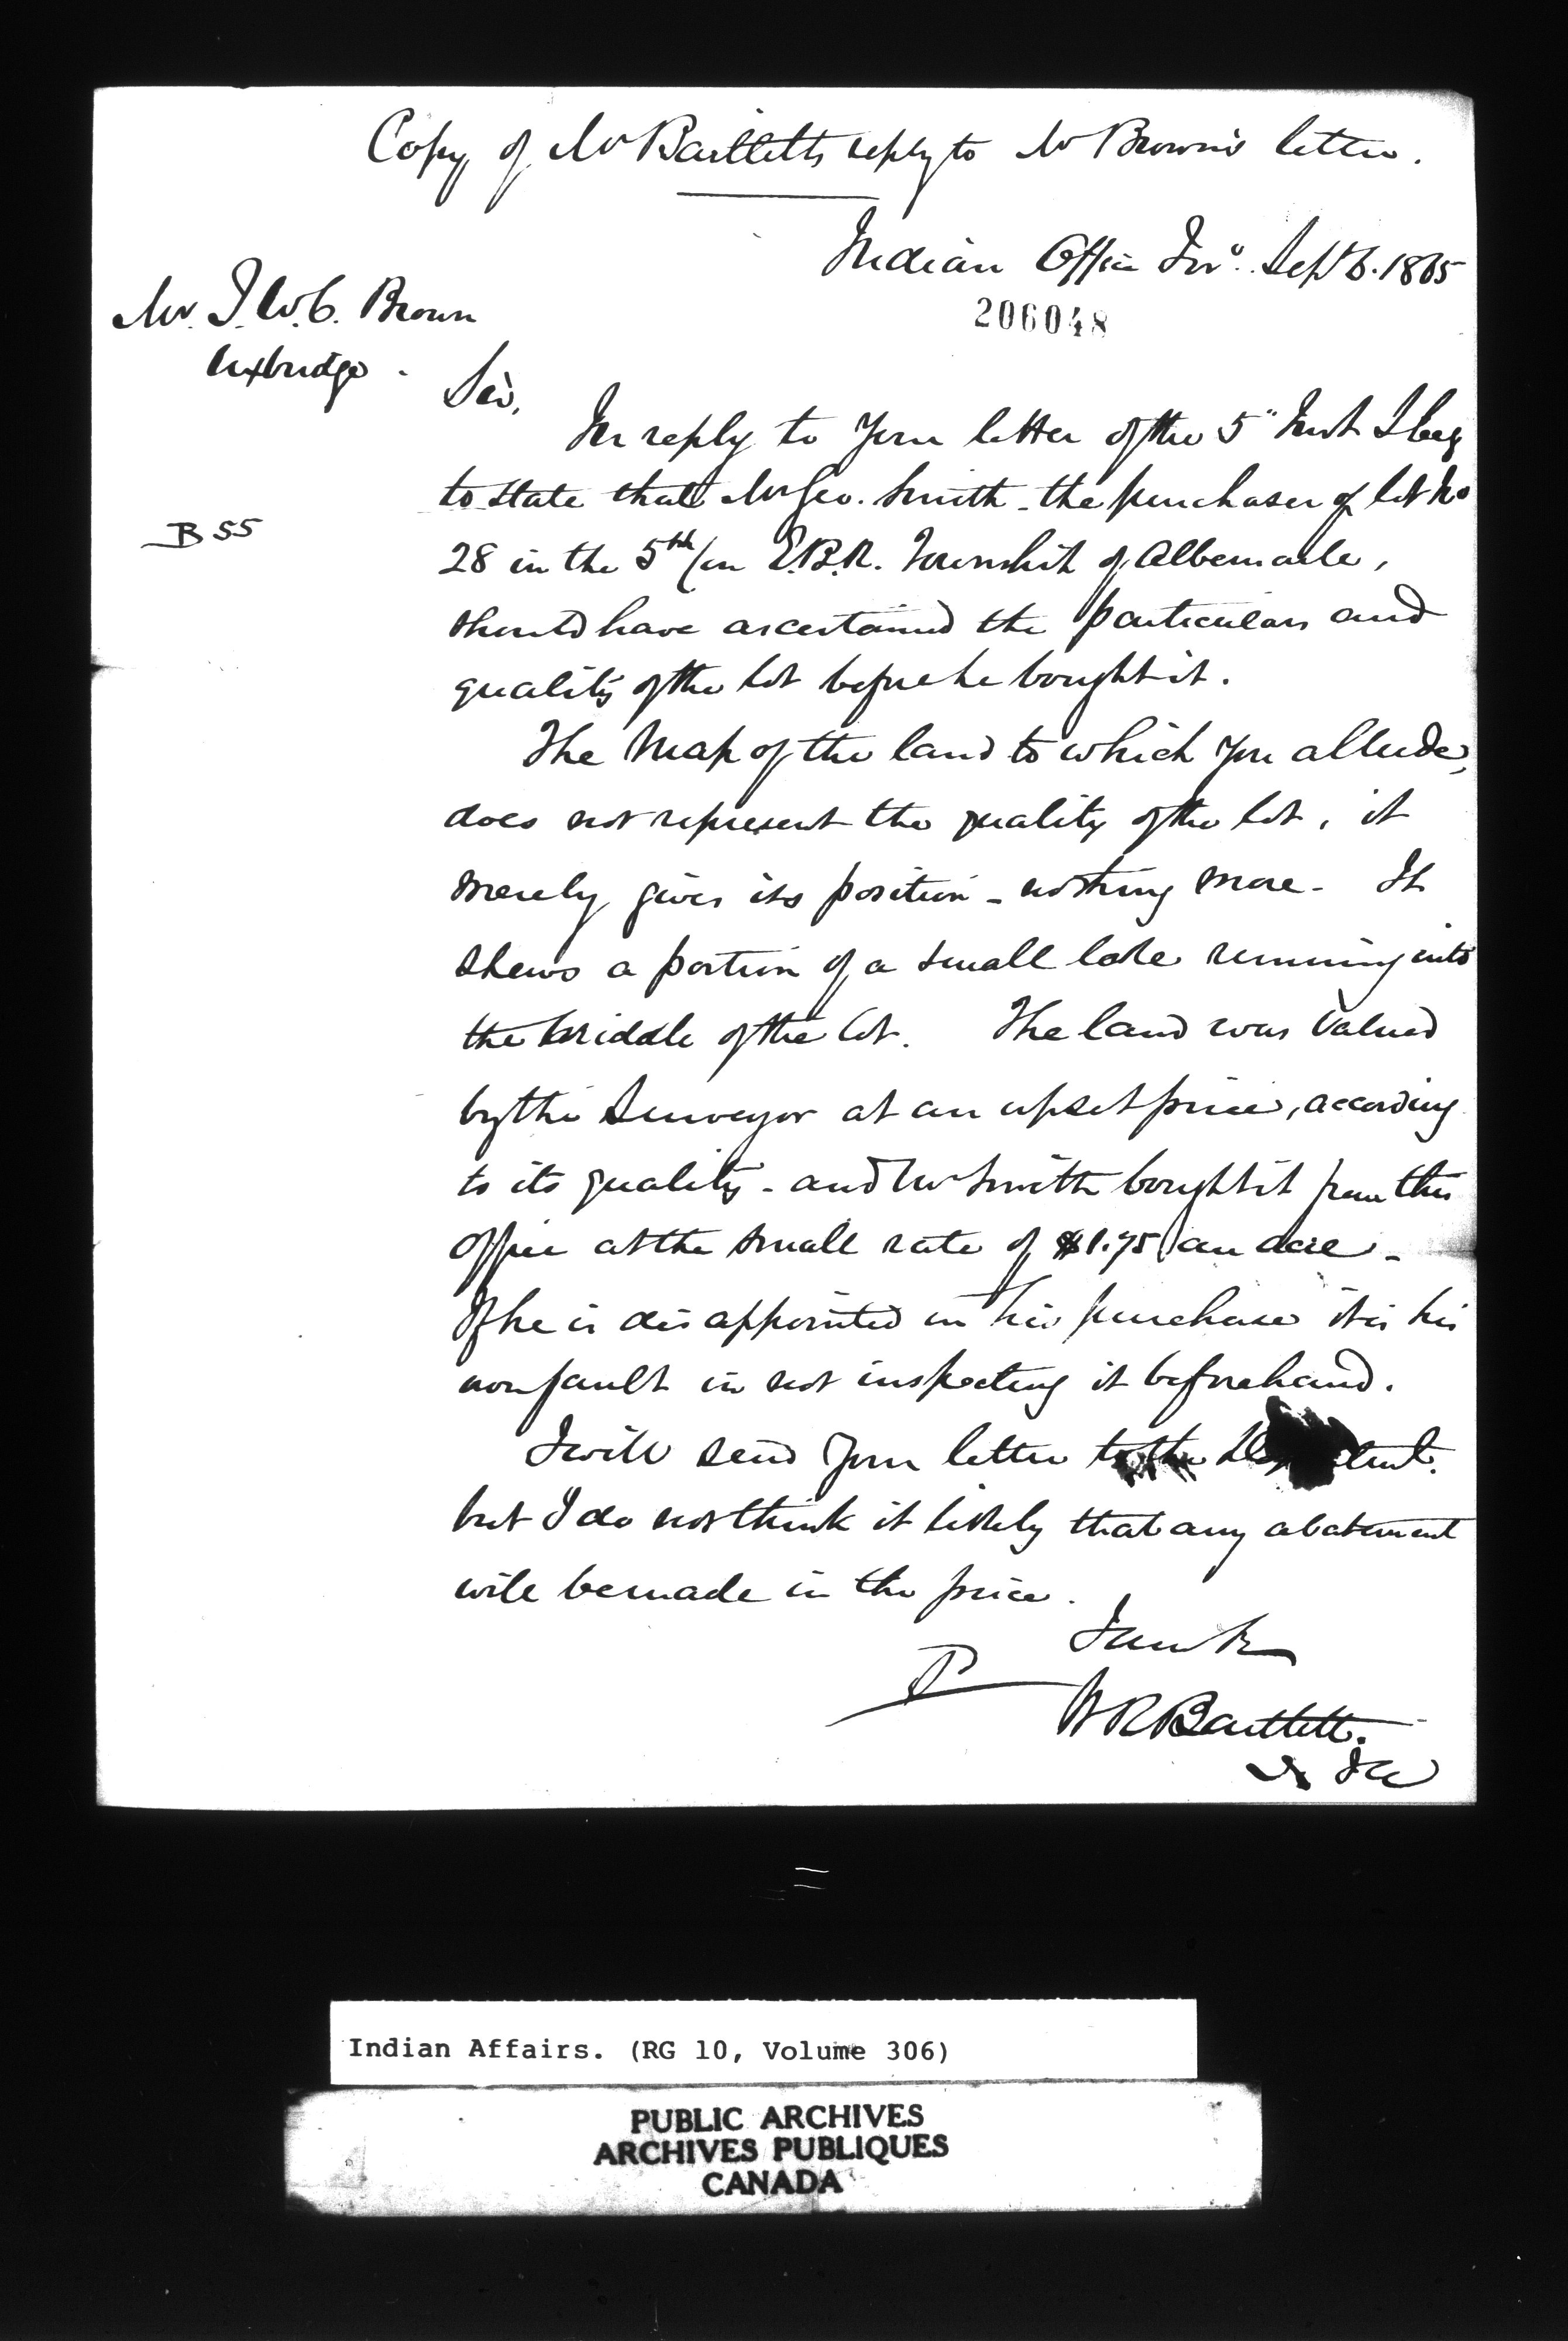 Copy of Mr Bartletts reply to Mr Browns letter.
Indian Office Tor°. Sept 6. 1865
206048
Mr. J. W. C. Brown
Uxbridge.
Sir,
In reply to your letter of the 5" Inst I beg
to state that Mr Geo. Smith - the purchaser of lot No
B 55
28 in the 5th Con E.B.R. Township of Albemarle,
should have ascertained the particulars and
quality of the lot before he bought it.
The Map of the land to which you allude,
does not represent the quality of the lot, it
merely gives its position - nothing more - It
shews a portion of a small lake running into
the middle of the lot. The land was valued
by the Surveyor at an upset price, according
to its quality - and Mr Smith bought it from this
office at the small rate of $1.75 an acre -
If he is disappointed in his purchase it is his
own fault in not inspecting it beforehand.
I will send your letter to the
but I do not think it likely that any abatement
will be made in the price.
W R Bartlett.
Indian Affairs. (RG 10, Volume 306)
PUBLIC ARCHIVES
ARCHIVES PUBLIQUES
CANADA